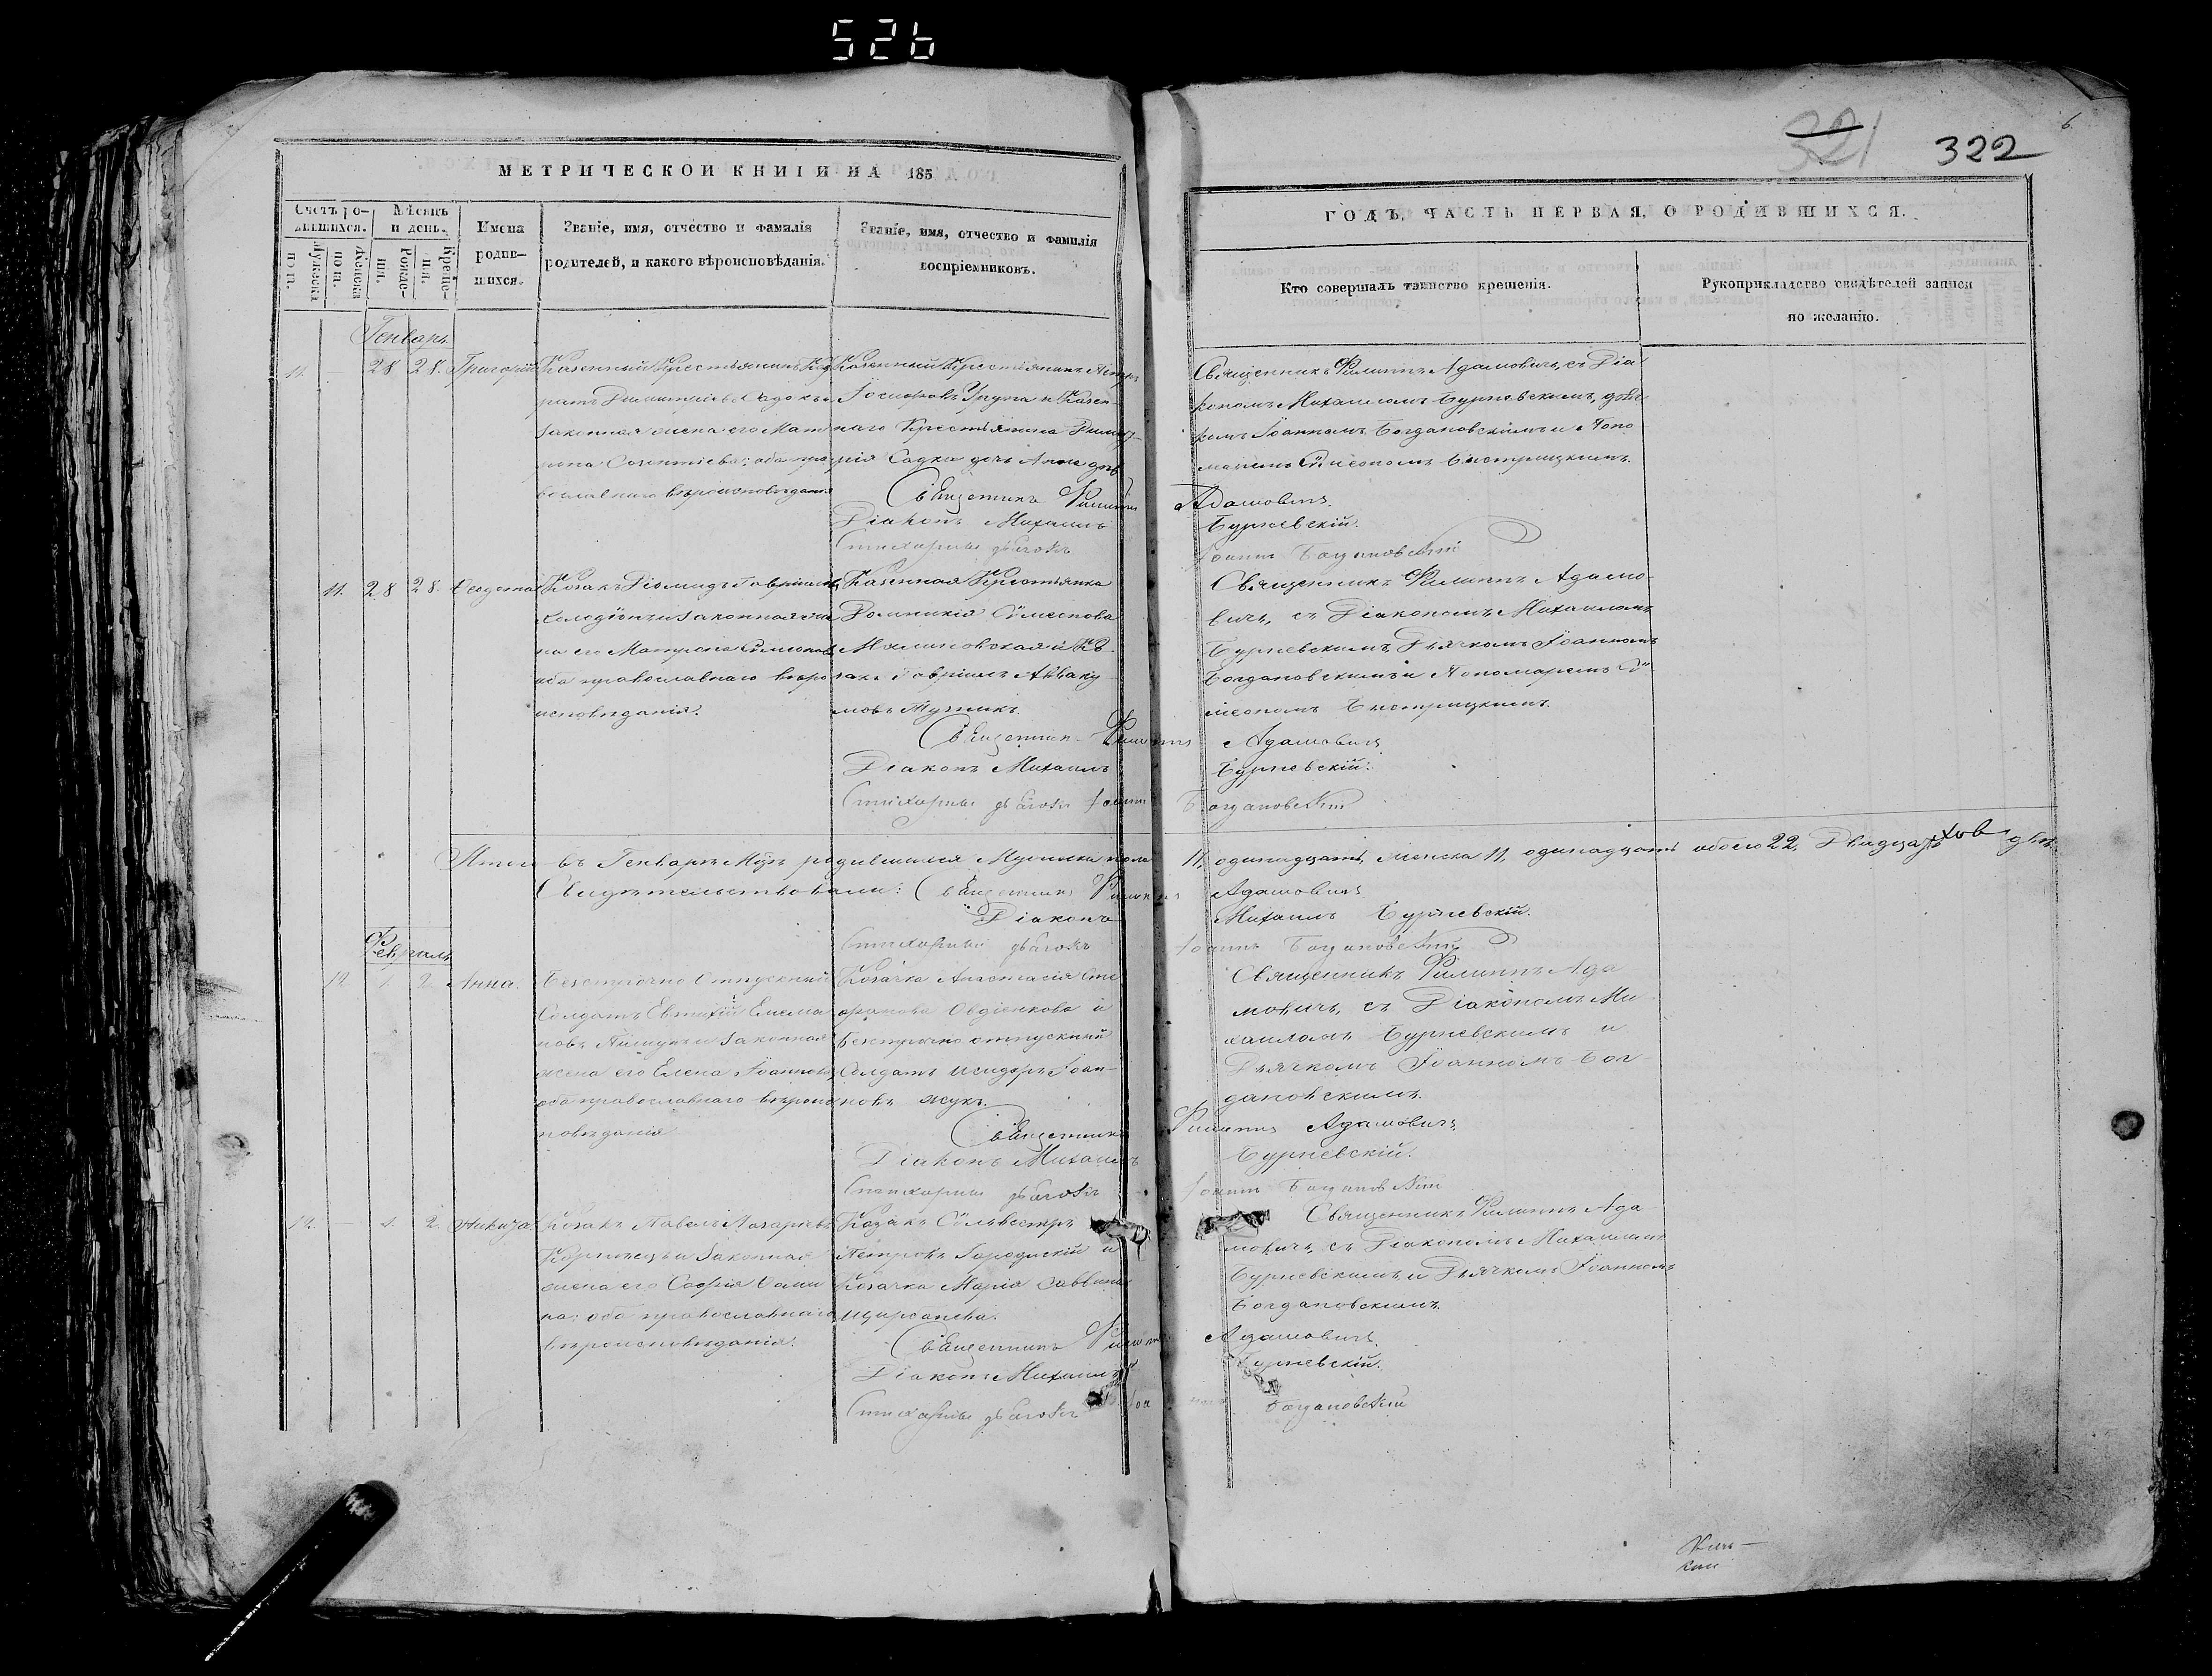 526
321
322
6
МЕТРИЧЕСКОЙ КНИГИ НА 185
ГОДЪ, ЧАСТЬ ПЕРВАЯ, О РОДИВШИХСЯ.
Счетъ ро-
дившихся.
Мужеска
пола.
Женска
пола.
Мѣсяцъ
и день.
Рожде-
нія.
Креще-
нія.
Имена
родив-
шихся.
Званіе, имя, отчество и фамилія
родителей, и какого вѣроисповѣданія.
Званіе, имя, отчество и фамилія
воспріемниковъ.
Кто совершалъ таинство крещенія.
Рукоприкладство свидѣтелей записи
по желанію.
Генварь
11. 28 28. Григорій
Казенный Крестьянинъ
Димитріевъ
законная жена его
оба пра
вославнаго вѣроисповѣданія
Казенный Крестьянинъ
Іосифовъ и Казен-
наго Крестьянина Димит-
рія Садка дочь Анна
Священникъ Филиппъ Адамовичъ
Діаконъ Михаилъ Бурневскій.
Стихарный дьячокъ Іоаннъ Богдановскій
Священникъ Филиппъ Адамовичъ, съ Діа
кономъ Михаиломъ Бурневскимъ, дьяч
комъ Іоанномъ Богдановскимъ и Поно
маремъ Сѵмеономъ Быстрицкимъ.
11. 28 28. Феодотія
Козакъ Діомидъ
и законная же
на его Матрона
оба православнаго вѣро
исповѣданія.
Казенная Крестьянка
Домникія Сѵмеонова
и Ко
закъ Гавріилъ Авваку
мовъ
Священникъ Филиппъ Адамовичъ
Діаконъ Михаилъ Бурневскій.
Стихарный дьячокъ Іоаннъ Богдановскій
Священникъ Филиппъ Адамо-
вичъ, съ Діакономъ Михаиломъ
Бурневскимъ, Дьячкомъ Іоанномъ
Богдановскимъ и Пономаремъ Сѵ
меономъ Быстрицкимъ.
Итого въ Генварѣ Мцѣ родившихся Мужеска пола 11, одинадцать, женска 11, одинадцать обоего 22, Двадцать два
Свидѣтельствовали: Священникъ Филиппъ Адамовичъ
Діаконъ Михаилъ Бурневскій.
Стихарный дьячокъ Іоаннъ Богдановскій
Февраль
12. 1. 2. Анна.
Безсрочно Отпускный
Солдатъ Евтихій
и законная
жена его Елена Іоаннова,
оба православнаго вѣроис
повѣданія
Козачка Анастасія Сте
фанова Овдіенкова и
Безсрочно отпускный
Солдатъ Исидоръ Іоан-
новъ Жукъ.
Священникъ Филиппъ Адамовичъ
Діаконъ Михаилъ Бурневскій.
Стихарный дьячокъ Іоаннъ Богдановскій
Священникъ Филиппъ Ада
мовичъ, съ Діакономъ Ми
хаиломъ Бурневскимъ и
Дьячкомъ Іоанномъ Бог
дановскимъ.
12. 1. 2.
Козакъ Павелъ Лазаревъ
и законная
жена его Софія
на; оба православнаго
вѣроисповѣданія.
Козакъ Сѵльвестръ
Петровъ и
Козачка Марія Саввина
Священникъ Филиппъ Адамовичъ
Діаконъ Михаилъ Бурневскій.
Стихарный дьячокъ Іоаннъ Богдановскій
Священникъ Филиппъ Ада
мовичъ, съ Діакономъ Михаиломъ
Бурневскимъ и Дьячкомъ Іоанномъ
Богдановскимъ.